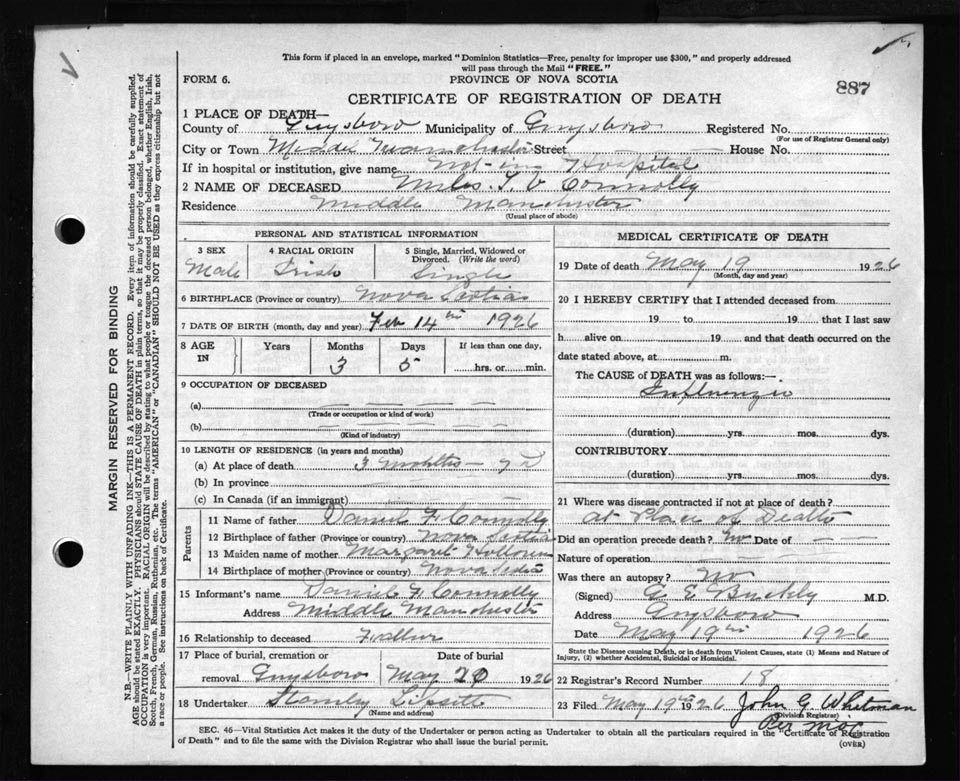 This form if placed in an envelope, marked "Dominion Statistics—Free, penalty for improper use $300," and properly addressed
will pass through the Mail "FREE."
FORM 6.
PROVINCE OF NOVA SCOTIA
887
CERTIFICATE OF REGISTRATION OF DEATH
1 PLACE OF DEATH—
County of Guysboro Municipality of Guysboro Registered No.
(For use of Registrar General only)
City or Town Middle Manchester Street House No.
If in hospital or institution, give name Not in Hospital
2 NAME OF DECEASED Miles. T. V Connolly
Residence Middle Manchester
(Usual place of abode)
PERSONAL AND STATISTICAL INFORMATION
3 SEX Male
4 RACIAL ORIGIN Irish
5 Single, Married, Widowed or Divorced. (Write the word) Single
6 BIRTHPLACE (Province or country) Nova Scotia
7 DATE OF BIRTH (month, day and year) Feb 14th 1926
8 AGE IN Years Months 3 Days 5 If less than one day, hrs. or min.
9 OCCUPATION OF DECEASED
(a)
(Trade or occupation or kind of work)
(b)
(Kind of industry)
10 LENGTH OF RESIDENCE (in years and months)
(a) At place of death 3 months
(b) In province
(c) In Canada (if an immigrant)
Parents
11 Name of father Daniel F Connolly
12 Birthplace of father (Province or country) Nova Scotia
13 Maiden name of mother Margaret
14 Birthplace of mother (Province or country) Nova Scotia
15 Informant's name Daniel F Connolly
Address Middle Manchester
16 Relationship to deceased Father
17 Place of burial, cremation or removal Guysboro
Date of burial May 20 1926
18 Undertaker Stanley
(Name and address)
MEDICAL CERTIFICATE OF DEATH
19 Date of death May 19 1926
(Month, day and year)
20 I HEREBY CERTIFY that I attended deceased from
19 to 19 that I last saw
h alive on 19 and that death occurred on the
date stated above, at m.
The CAUSE of DEATH was as follows:—
Influenzia
(duration) yrs. mos. dys.
CONTRIBUTORY
(duration) yrs. mos. dys.
21 Where was disease contracted if not at place of death?
at Place of Death
Did an operation precede death? No Date of
Nature of operation
Was there an autopsy? No
(Signed) E E Buckly M.D.
Address Guysboro
Date May 19th 1926
State the Disease causing Death, or in death from Violent Causes, state (1) Means and Nature of
Injury, (2) whether Accidental, Suicidal or Homicidal.
22 Registrar's Record Number 18
23 Filed May 19th 1926 John G Whitman
(Division Registrar)
(OVER)
SEC. 46—Vital Statistics Act makes it the duty of the Undertaker or person acting as Undertaker to obtain all the particulars required in the "Certificate of Registration
of Death" and to file the same with the Division Registrar who shall issue the burial permit.
MARGIN RESERVED FOR BINDING
N.B.—WRITE PLAINLY WITH UNFADING INK—THIS IS A PERMANENT RECORD. Every item of information should be carefully supplied.
AGE should be stated EXACTLY. PHYSICIANS should STATE CAUSE OF DEATH in plain terms, so that it may be properly classified. Exact statement of
OCCUPATION is very important. RACIAL ORIGIN will be described by stating to what people or tongue the deceased person belonged, whether English, Irish,
Scotch, French, German, Russian, Ruthenian, etc. The terms "AMERICAN" or "CANADIAN" SHOULD NOT BE USED as they express citizenship but not
a race or people. See instructions on back of Certificate.